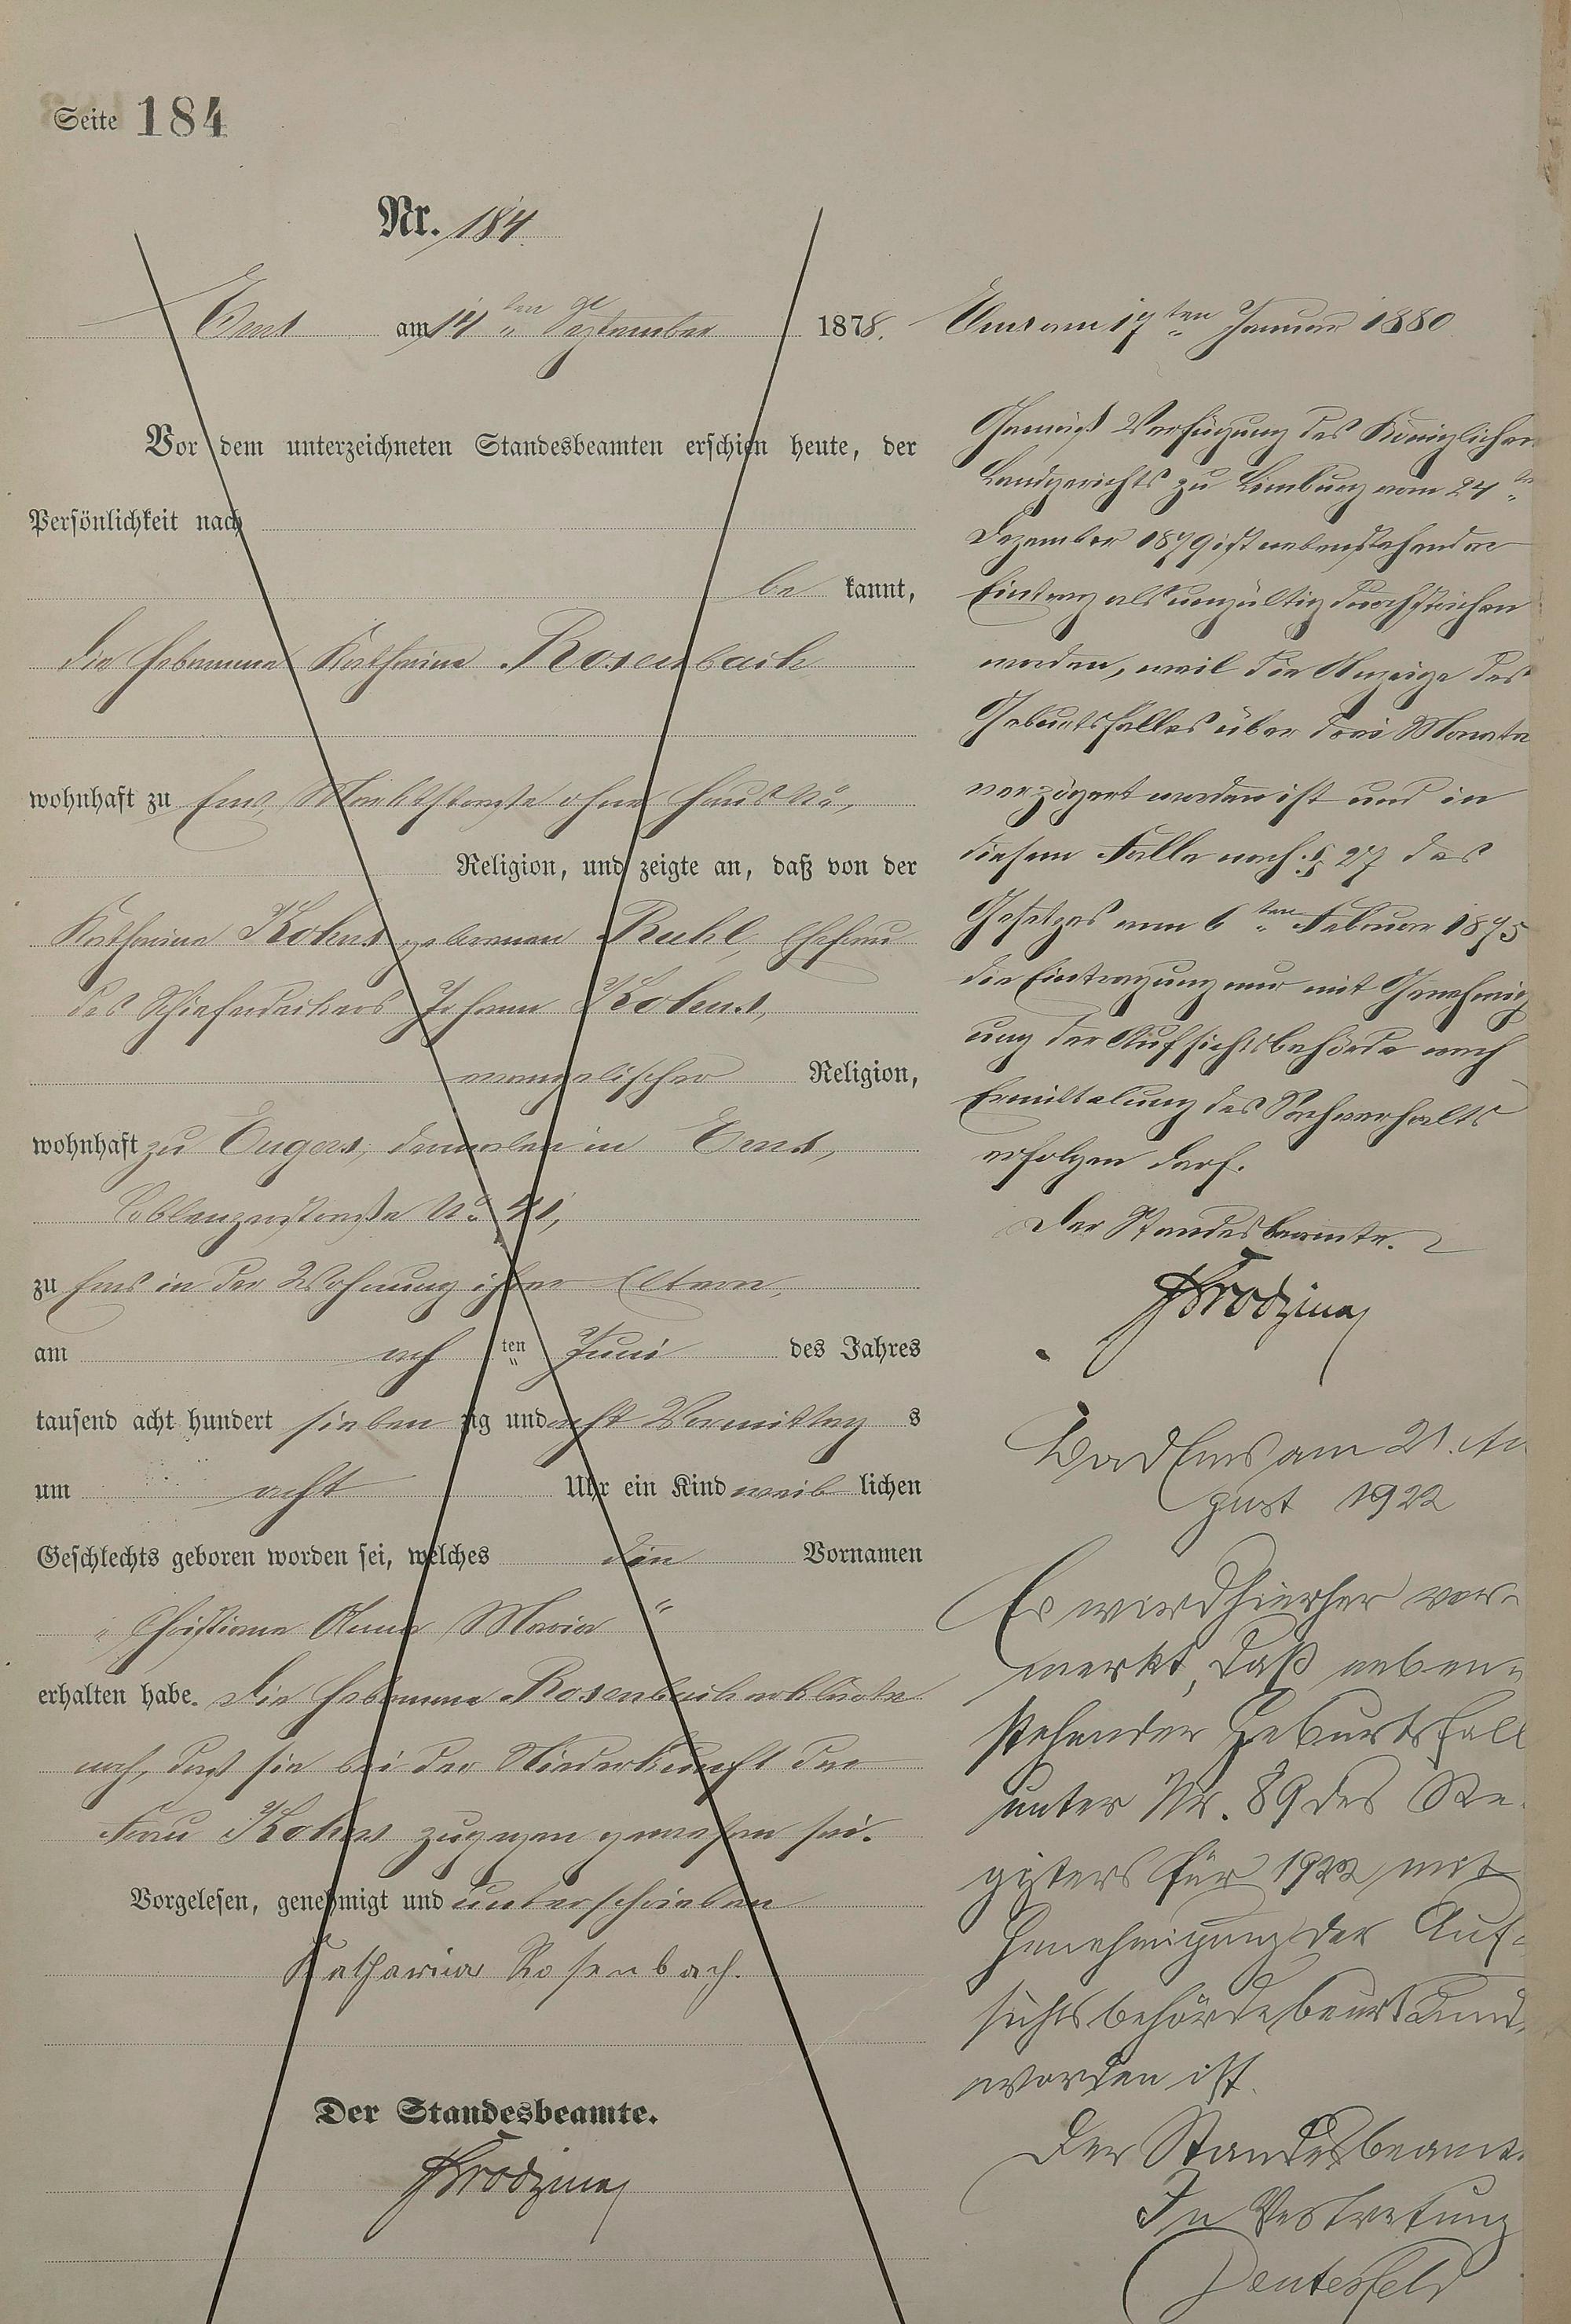 Seite 184
Nr. 184.
Ems am 14ten September 1878.
Vor dem unterzeichneten Standesbeamten erschien heute, der
Persönlichkeit nach
be kannt,
die Hebamme Katharina Rosenbach
wohnhaft zu Ems, Marktstraße ohne Haus No,
Religion, und zeigte an, daß von der
Katharina Kohns geborenen Ruhl, Ehefrau
des Schieferdeckers Johann Kohns,
evangelischer Religion,
wohnhaft zu Engers, dermalen in Ems,
Coblenzerstraße No. 41,
zu Ems in der Wohnung ihrer Eltern,
am ach ten Juni des Jahres
tausend acht hundert sieben zig und acht Vormittag s
um acht Uhr ein Kind weib lichen
Geschlechts geboren worden sei, welches den Vornamen
„Christiana Anna Maria“
erhalten habe. Die Hebamme Rosenbach erklärte
noch, daß sie bei der Niederkunft der
Frau Kohns zugegen gewesen sei.
Vorgelesen, genehmigt und unterschrieben
Katharina Rosenbach.
Der Standesbeamte.
Ems am 17ten Januar 1880
Gemäß Verfügung des Königlichen
Landgerichts zu Limburg vom 24
Dezember 1879 ist nebenstehender
Eintrag als ungültig durchstrichen
worden, weil die Anzeige des
Geburtsfalles über drei Monate
verzögert worden ist und in
diesem Falle nach § 27 des
Gesetzes vom 6ten Februar 1875
die Eintragung nur mit Genehmig
ung der Aufsichtsbehörde nach
Ermittelung des Sachverhalts
erfolgen darf.
Der Standesbeamte.
Bad Ems am 21. Au
gust 1922
Es wird hierher ver-
merkt, daß neben-
stehender Geburtsfall
unter Nr. 89 des Re-
gisters für 1922 mit
Genehmigung der Auf-
sichtsbehörde beurkund
worden ist.
Der Standesbeamte
In Vertretung